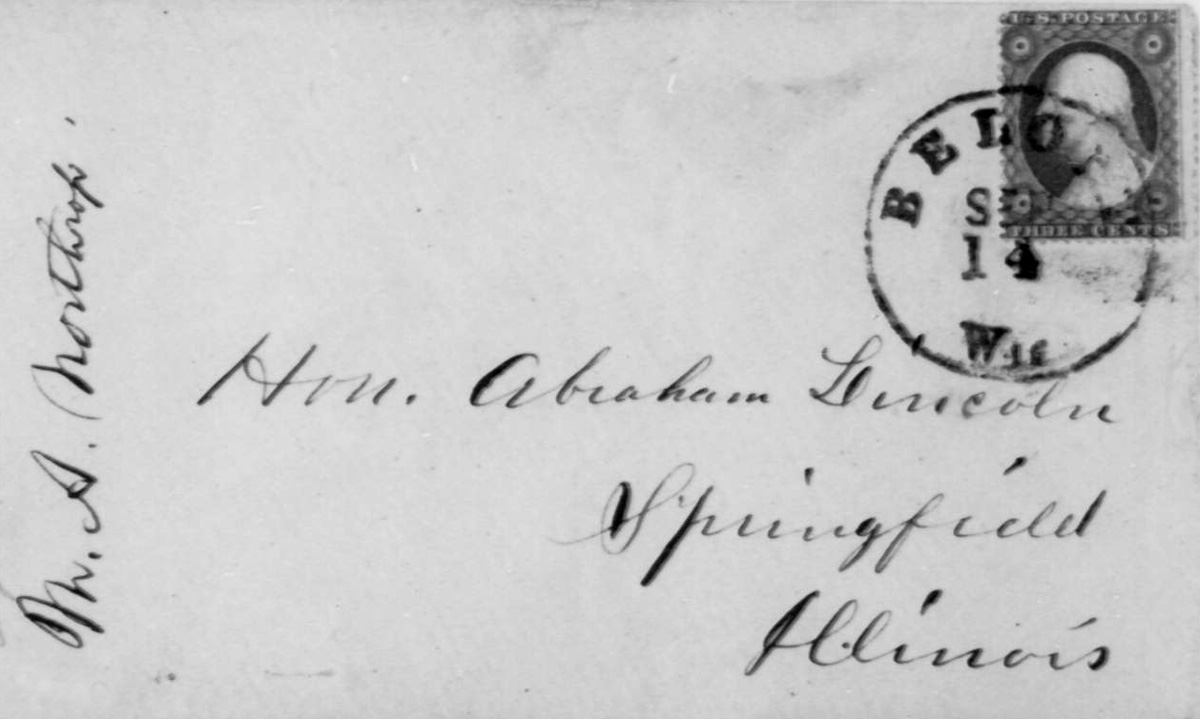 U.S. POSTAGE
THREE CENTS
BELO
S
14
Wis
Hon. Abraham Lincoln
Springfield
Illinois
M. A. Northrop.